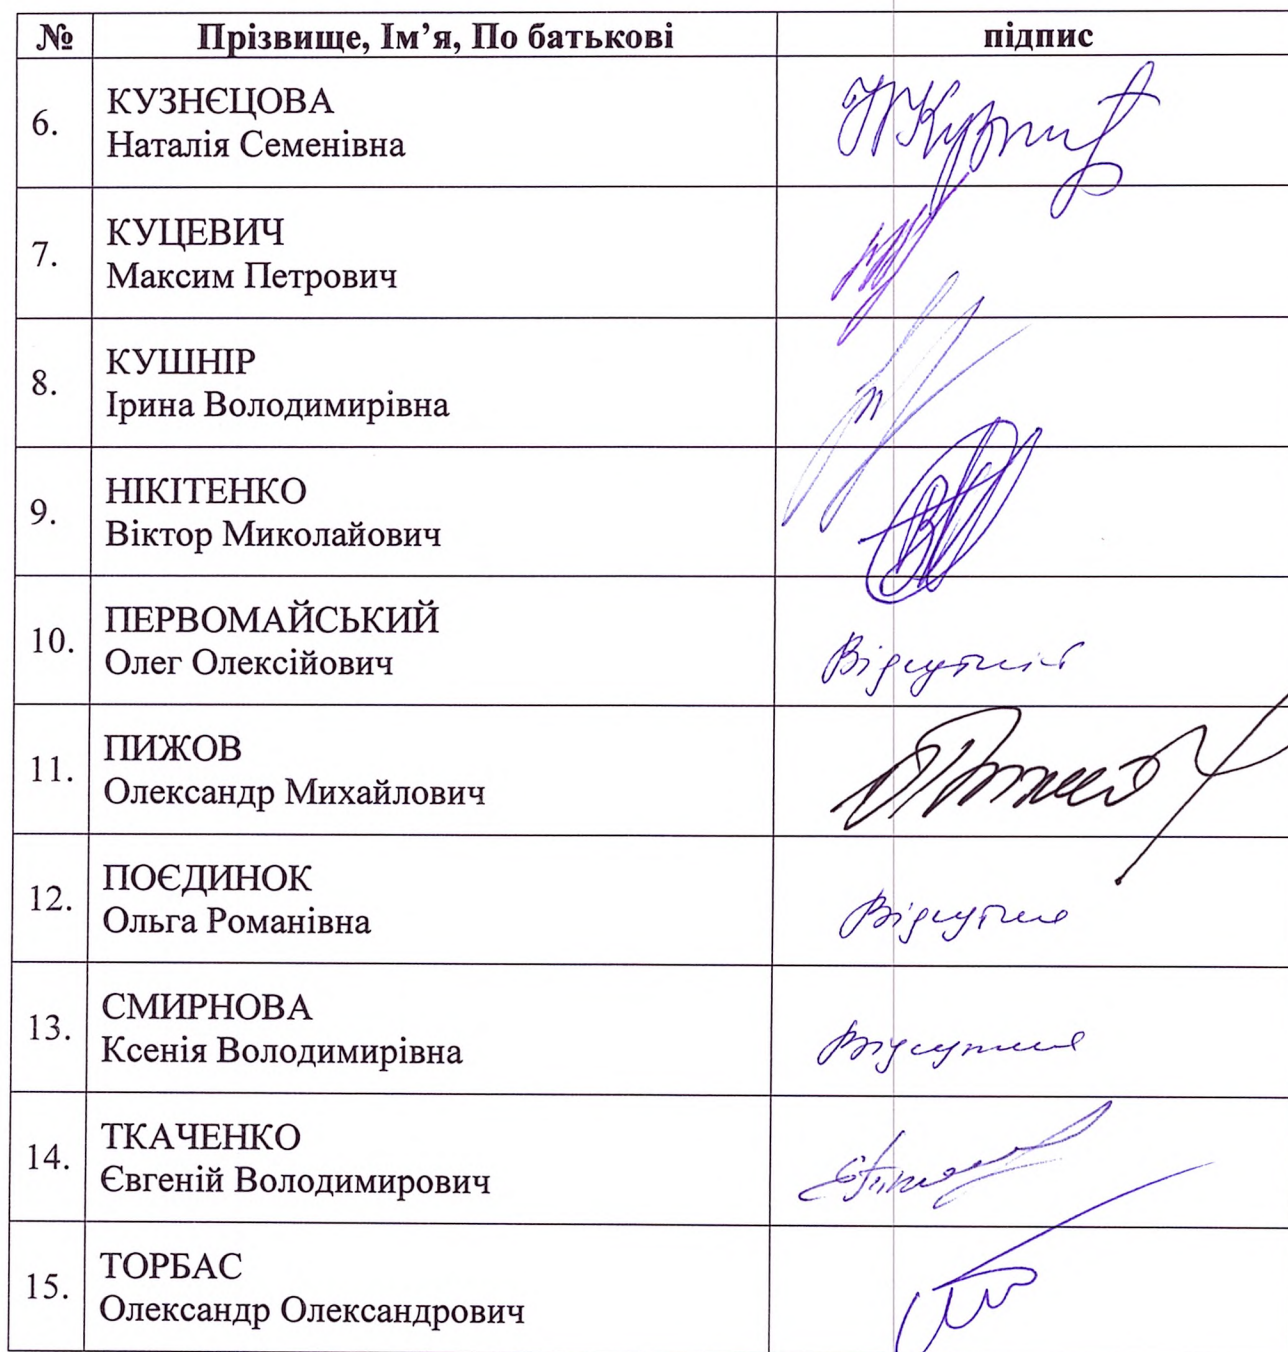 № Прізвище, Ім’я, По батькові підпис
6. КУЗНЄЦОВА
Наталія Семенівна
7. КУЦЕВИЧ
Максим Петрович
8. КУШНІР
Ірина Володимирівна
9. НІКІТЕНКО
Віктор Миколайович
10. ПЕРВОМАЙСЬКИЙ
Олег Олексійович
Відсутній
11. ПИЖОВ
Олександр Михайлович
12. ПОЄДИНОК
Ольга Романівна
Відсутня
13. СМИРНОВА
Ксенія Володимирівна
Відсутня
14. ТКАЧЕНКО
Євгеній Володимирович
15. ТОРБАС
Олександр Олександрович